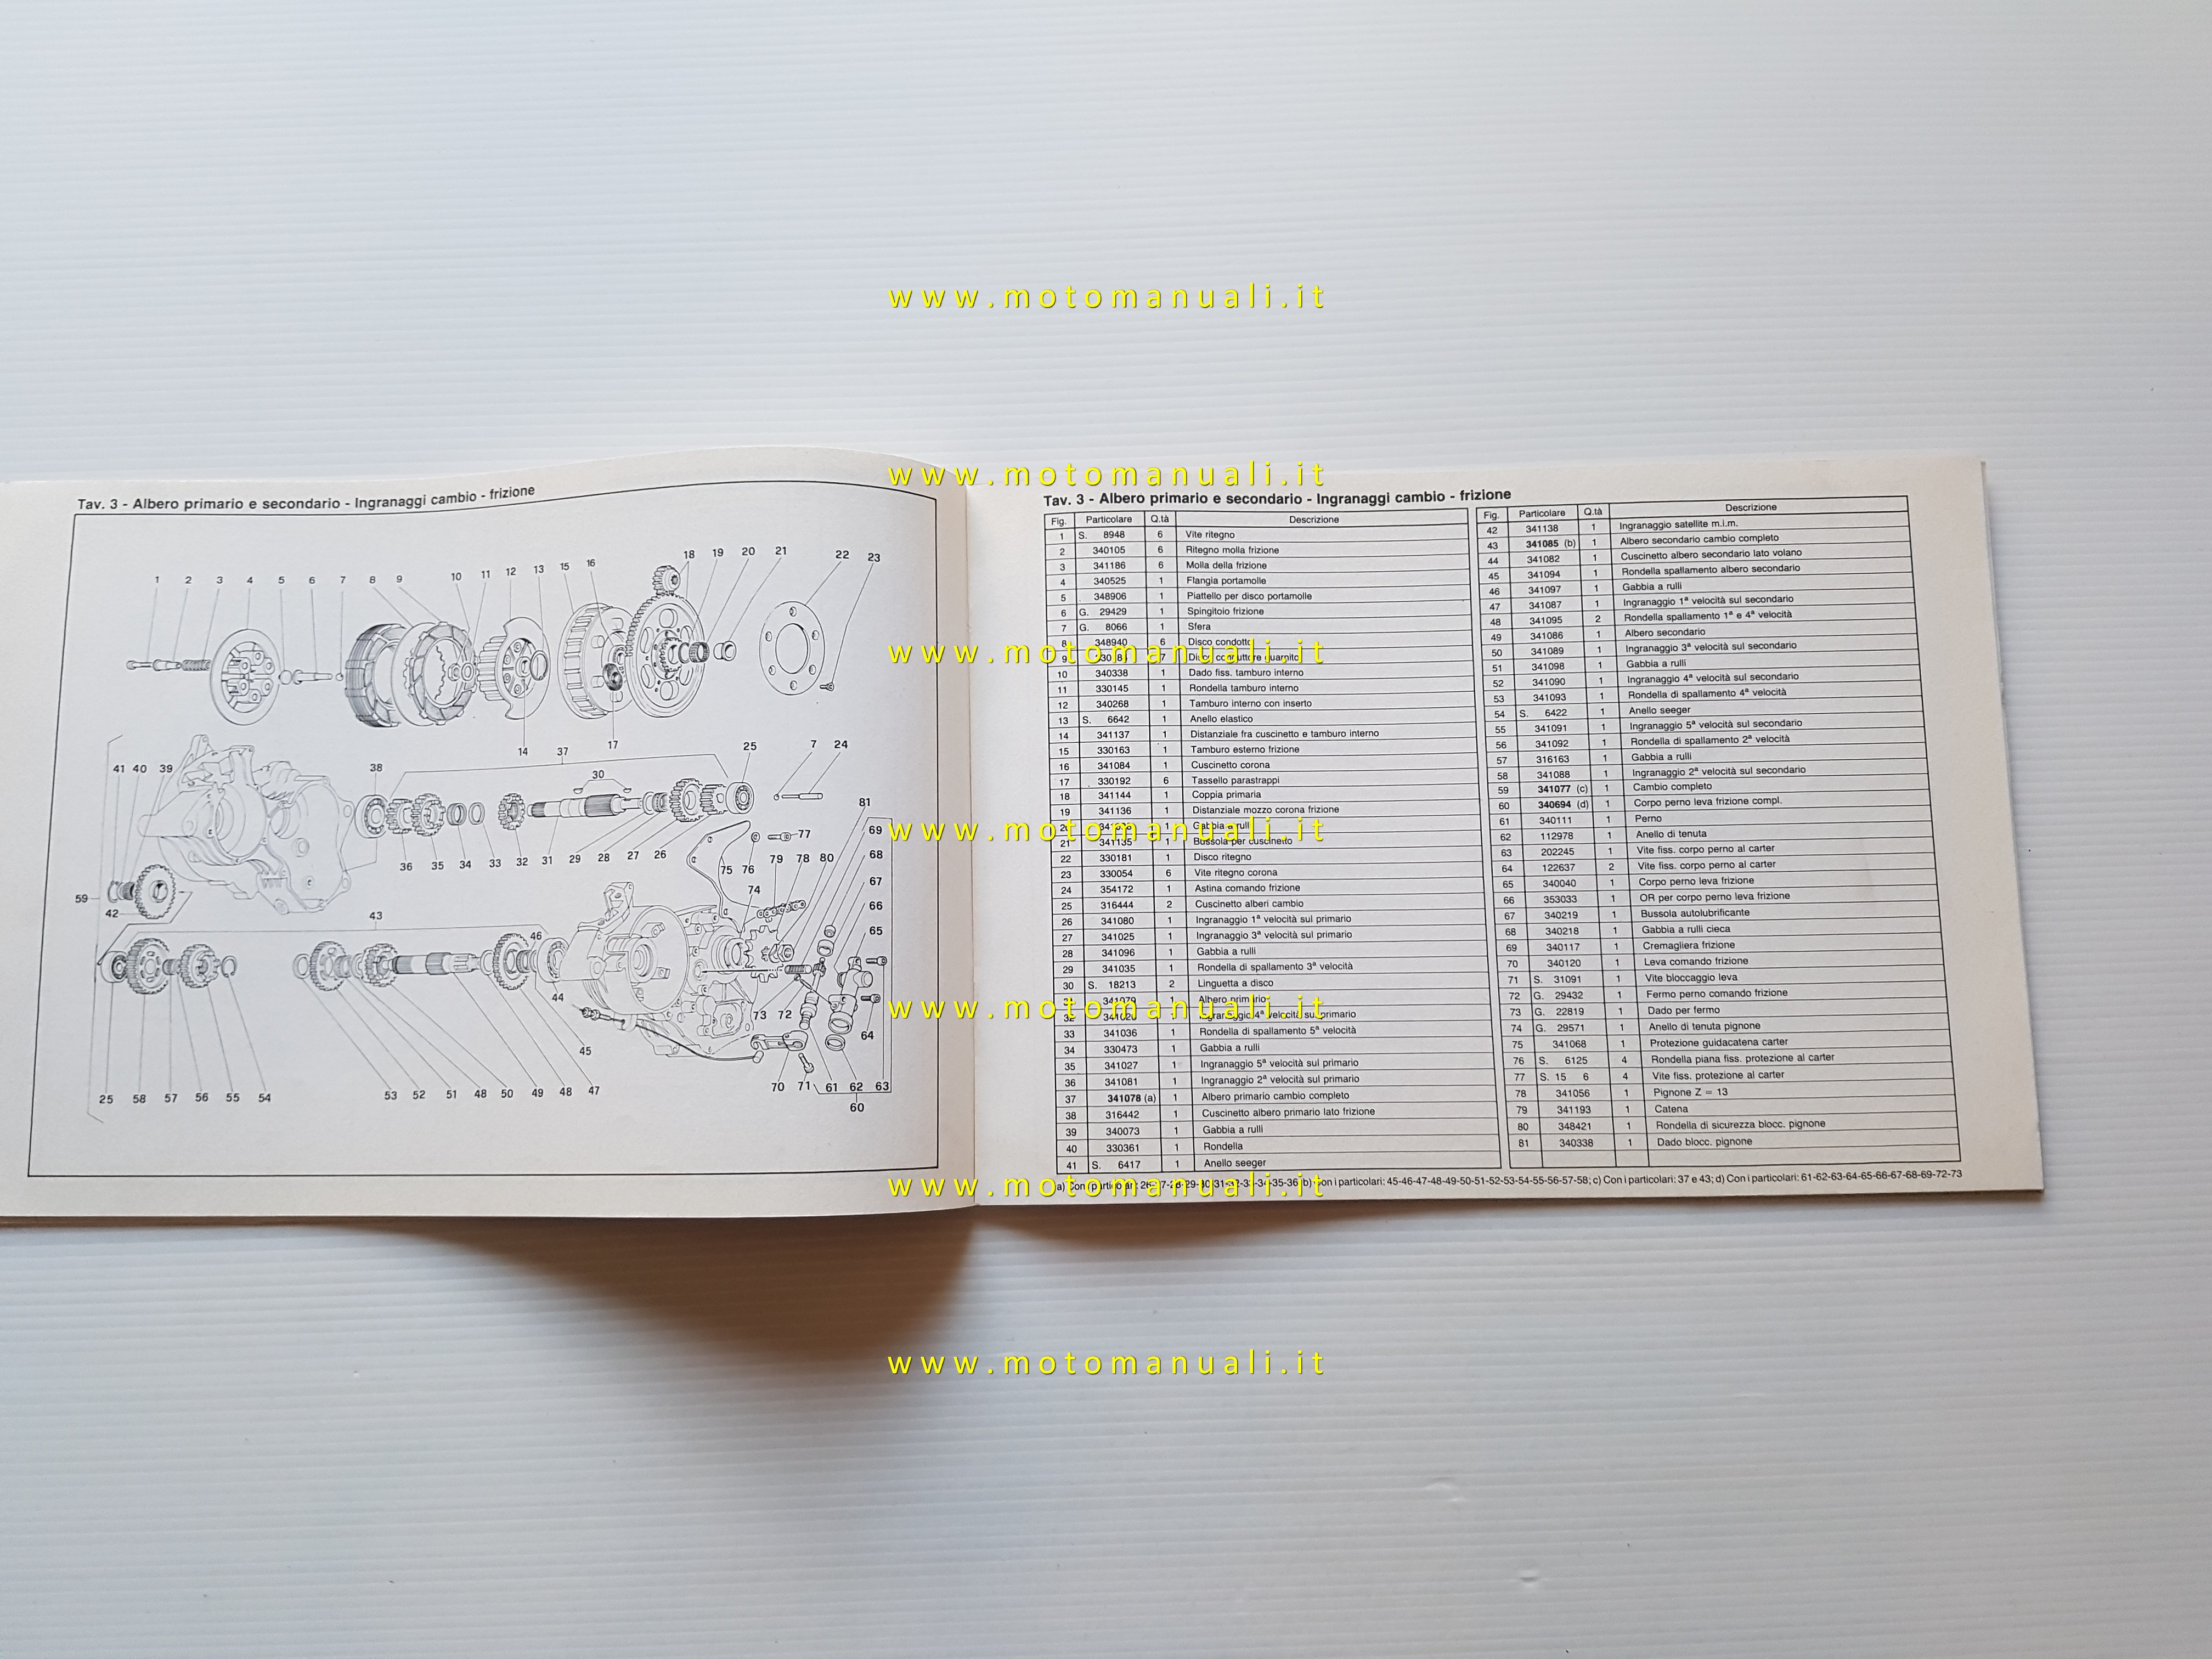 www.motomanuali.it
www.motomanuali.it
Tav. 3 - Albero primario e secondario - Ingranaggi cambio - frizione
1 2 3 4 5 6 7 8 9 10 11 12 13 15 16 18 19 20 21 22 23
14 37 17 25 7 24
41 40 39 38 30 81
36 35 34 33 32 31 29 28 27 26 77 69
75 76 79 78 80 68
59 42 43 74 67
46 66
65
44
73 72 64
45
25 58 57 56 55 54 53 52 51 48 50 49 48 47 70 71 61 62 63
60
Tav. 3 - Albero primario e secondario - Ingranaggi cambio - frizione
Fig. Particolare Q.tà Descrizione
1 S. 8948 6 Vite ritegno
2 340105 6 Ritegno molla frizione
3 341186 6 Molla della frizione
4 340525 1 Flangia portamolle
5 348906 1 Piattello per disco portamolle
6 G. 29429 1 Spingitoio frizione
7 G. 8066 1 Sfera
8 348940 6 Disco condotto
www.motomanuali.it
9 7 guarnito
10 340338 1 Dado fiss. tamburo interno
11 330145 1 Rondella tamburo interno
12 340268 1 Tamburo interno con inserto
13 S. 6642 1 Anello elastico
14 341137 1 Distanziale fra cuscinetto e tamburo interno
15 330163 1 Tamburo esterno frizione
16 341084 1 Cuscinetto corona
17 330192 6 Tassello parastrappi
18 341144 1 Coppia primaria
19 341136 1 Distanziale mozzo corona frizione
20 1 Gabbia a rulli
www.motomanuali.it
21 341135 1 Bussola per cuscinetto
22 330181 1 Disco ritegno
23 330054 6 Vite ritegno corona
24 354172 1 Astina comando frizione
25 316444 2 Cuscinetto alberi cambio
26 341080 1 Ingranaggio 1ª velocità sul primario
27 341025 1 Ingranaggio 3ª velocità sul primario
28 341096 1 Gabbia a rulli
29 341035 1 Rondella di spallamento 3ª velocità
30 S. 18213 2 Linguetta a disco
31 341079 1 Albero primario
www.motomanuali.it
32 1 Ingranaggio 4ª velocità sul primario
33 341036 1 Rondella di spallamento 5ª velocità
34 330473 1 Gabbia a rulli
35 341027 1 Ingranaggio 5ª velocità sul primario
36 341081 1 Ingranaggio 2ª velocità sul primario
37 341078 (a) 1 Albero primario cambio completo
38 316442 1 Cuscinetto albero primario lato frizione
39 340073 1 Gabbia a rulli
40 330361 1 Rondella
41 S. 6417 1 Anello seeger
Fig. Particolare Q.tà Descrizione
42 341138 1 Ingranaggio satellite m.i.m.
43 341085 (b) 1 Albero secondario cambio completo
44 341082 1 Cuscinetto albero secondario lato volano
45 341094 1 Rondella spallamento albero secondario
46 341097 1 Gabbia a rulli
47 341087 1 Ingranaggio 1ª velocità sul secondario
48 341095 2 Rondella spallamento 1ª e 4ª velocità
49 341086 1 Albero secondario
50 341089 1 Ingranaggio 3ª velocità sul secondario
51 341098 1 Gabbia a rulli
52 341090 1 Ingranaggio 4ª velocità sul secondario
53 341093 1 Rondella di spallamento 4ª velocità
54 S. 6422 1 Anello seeger
55 341091 1 Ingranaggio 5ª velocità sul secondario
56 341092 1 Rondella di spallamento 2ª velocità
57 316163 1 Gabbia a rulli
58 341088 1 Ingranaggio 2ª velocità sul secondario
59 341077 (c) 1 Cambio completo
60 340694 (d) 1 Corpo perno leva frizione compl.
61 340111 1 Perno
62 112978 1 Anello di tenuta
63 202245 1 Vite fiss. corpo perno al carter
64 122637 2 Vite fiss. corpo perno al carter
65 340040 1 Corpo perno leva frizione
66 353033 1 OR per corpo perno leva frizione
67 340219 1 Bussola autolubrificante
68 340218 1 Gabbia a rulli cieca
69 340117 1 Cremagliera frizione
70 340120 1 Leva comando frizione
71 S. 31091 1 Vite bloccaggio leva
72 G. 29432 1 Fermo perno comando frizione
73 G. 22819 1 Dado per fermo
74 G. 29571 1 Anello di tenuta pignone
75 341068 1 Protezione guidacatena carter
76 S. 6125 4 Rondella piana fiss. protezione al carter
77 S. 15 6 4 Vite fiss. protezione al carter
78 341056 1 Pignone Z = 13
79 341193 1 Catena
80 348421 1 Rondella di sicurezza blocc. pignone
81 340338 1 Dado blocc. pignone
www.motomanuali.it
a) Con i particolari: b) Con i particolari: 45-46-47-48-49-50-51-52-53-54-55-56-57-58; c) Con i particolari: 37 e 43; d) Con i particolari: 61-62-63-64-65-66-67-68-69-72-73
www.motomanuali.it